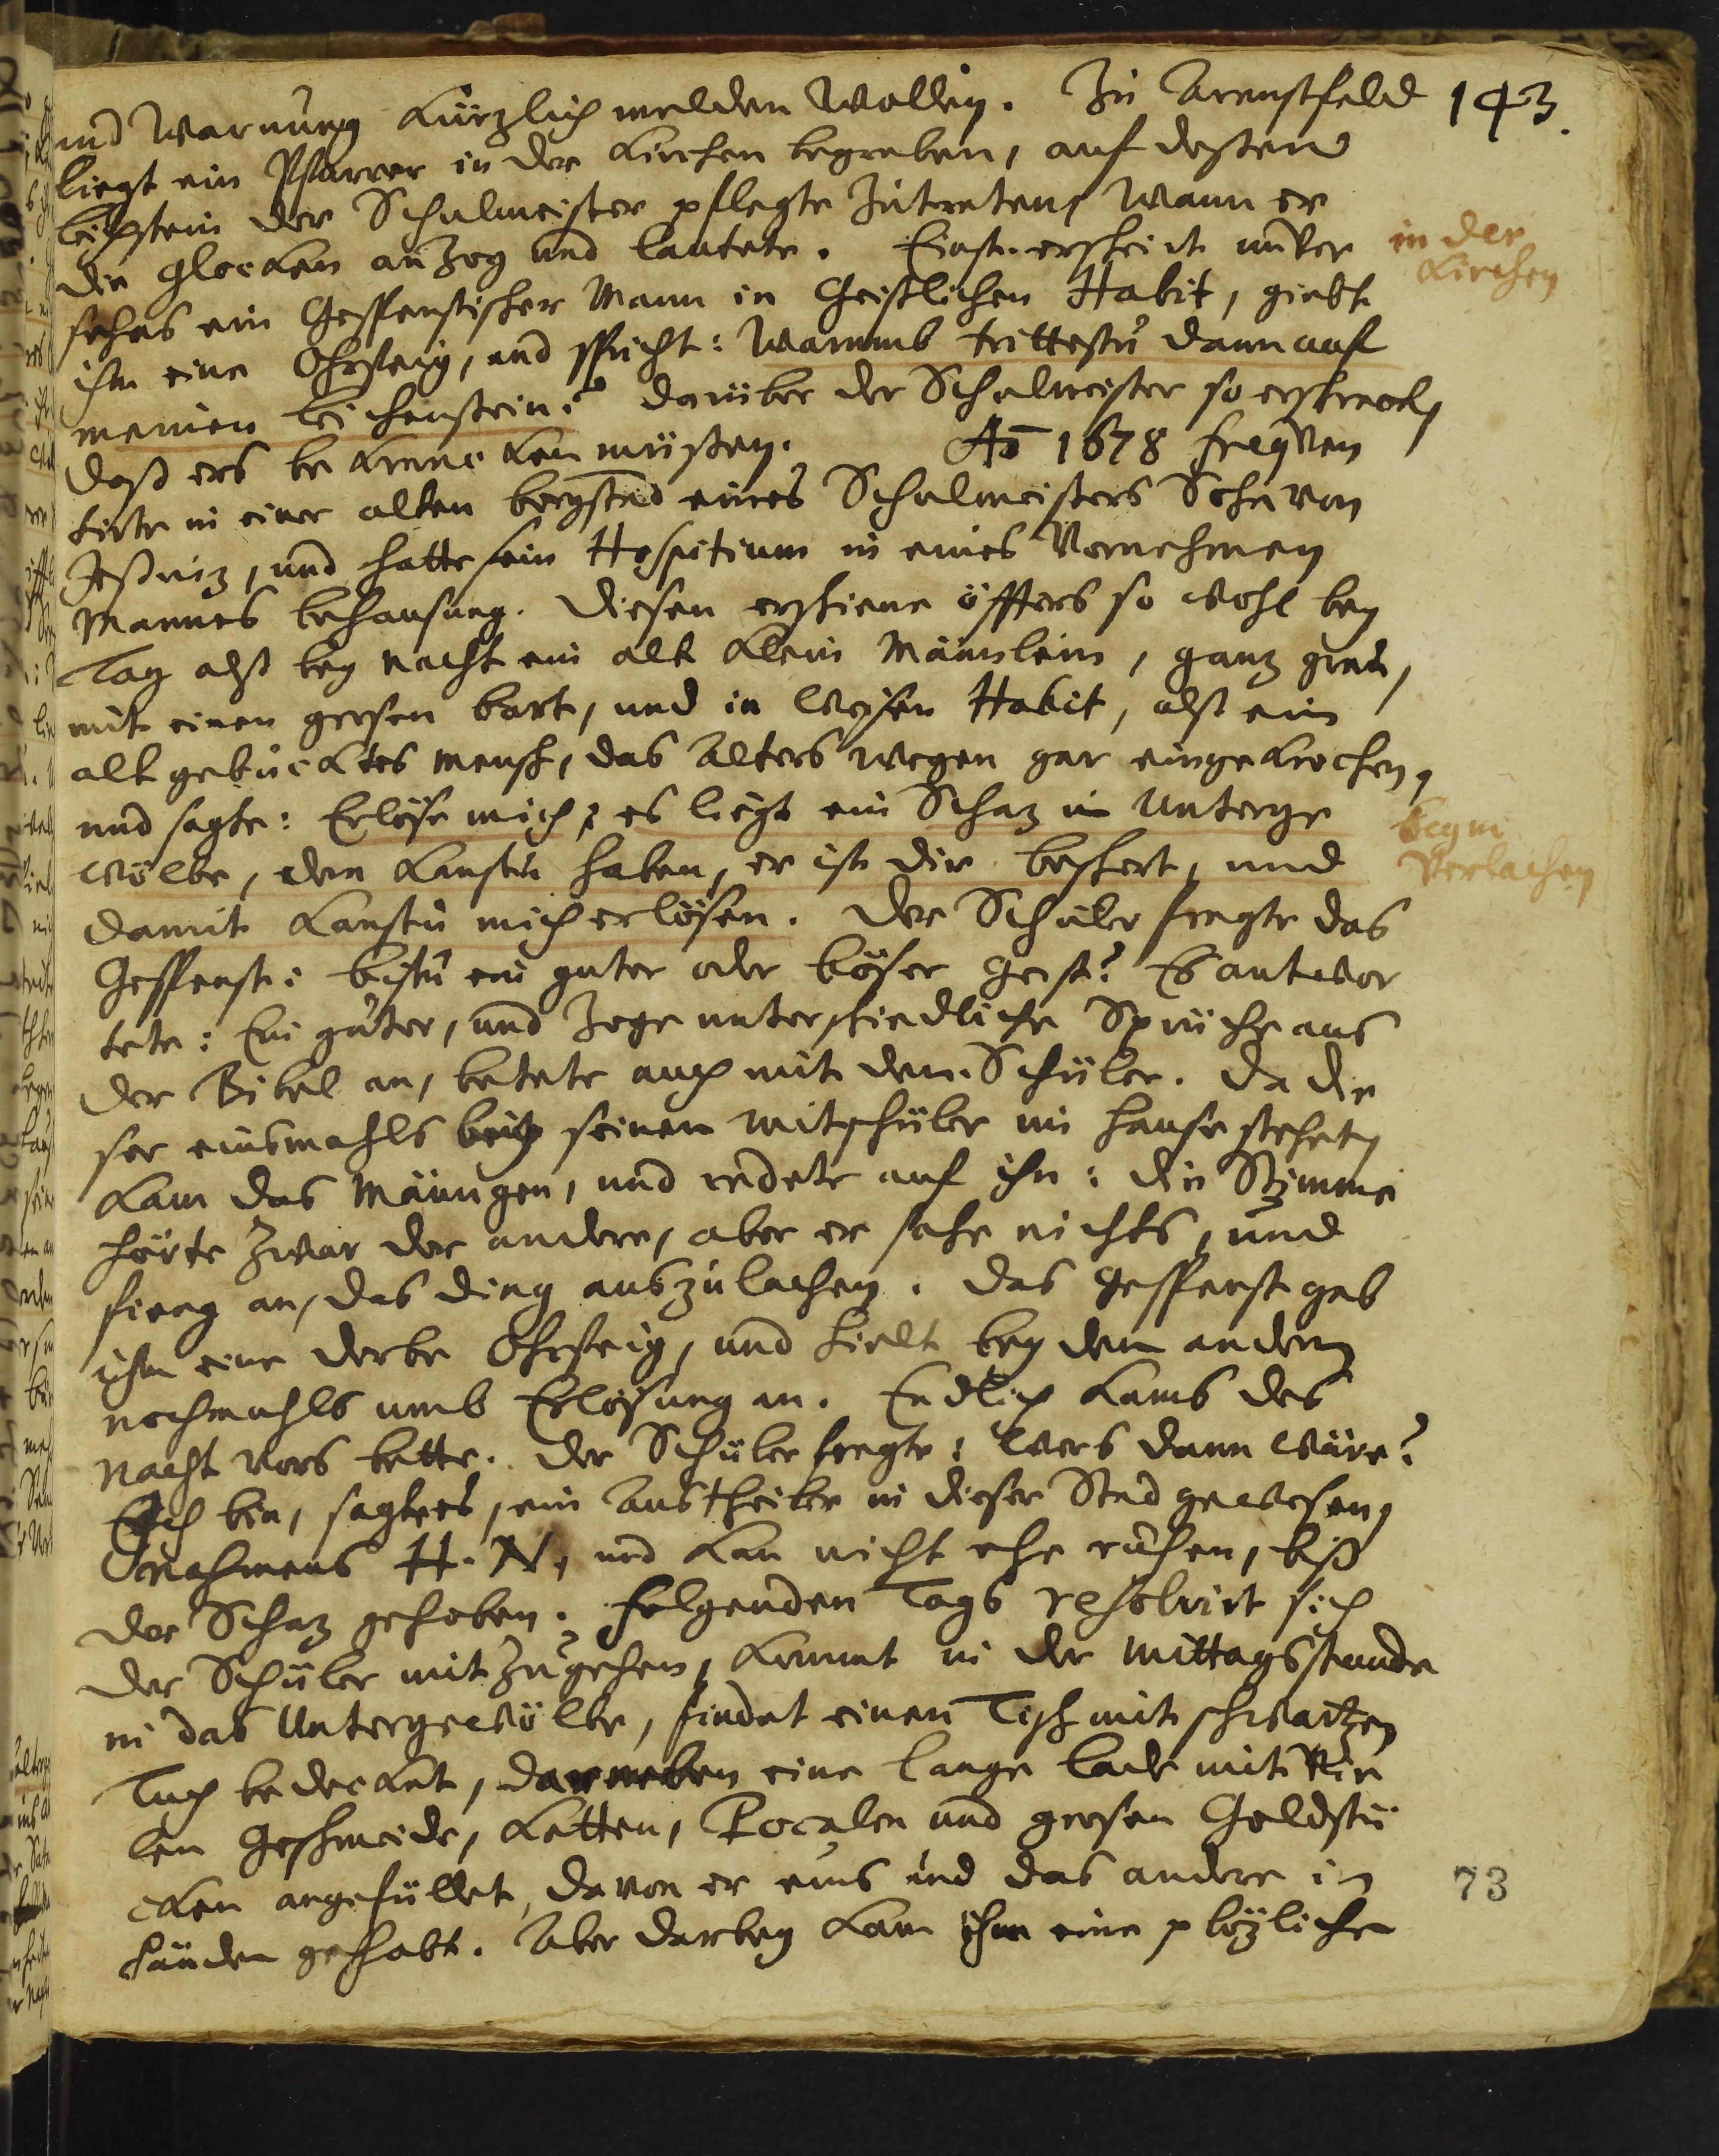 143.
und Warnung kürzlich melden wollen. Zu Arenstfeld
liegt ein Pfarrer in der Kirchen begraben, auf deßen
leichstein der Schulmeister pflegte zutreten, wann er
die Glocken anzog und lautete. Einst erscheint unver
in der
Kirchen
sehns ein Gespenstischer Mann in Geistlichen Habit, giebt
ihm eine Ohrfeig, und spricht: Warumb trittestu dann auf
meinen leichenstein? darüber der Schulmeister so erschrock,
daß ers be müßen. Ao 1678 freqven
tirte in einer alten bergstad eines Schulmeisters Sohn von
Jeßniz, und hatte sein Hospitium in eines Vornehmen
Mannes behausung. Diesen erschiene öffters so wohl bey
Tag alß bey nacht ein alt klein Männlein, ganz grau,
mit einen grosen bart, und in weisen Habit, alß ein
alt gebücktes mensch, das Alters wegen gar eingekrochen,
und sagte: Erlöse mich, es liegt ein Schaz im Unterge
beym
Verlachen
wölbe, den kanstu haben, er ist dir beschert, und
damit kanstu mich erlösen. Der Schüler fragte das
Gespenst: bistu ein guter oder böser Geist? Es antwor
tete: Ein guter, und zoge unterschiedliche Sprüche aus
der Bibel an, betete auch mit dem Schüler. Da die
ser einsmahls bey seinen mitschüler im Hause stehet,
kam das Männgen, und redete auf ihn: die Stimme
hörte zwar der andere, aber er sahe nichts, und
fieng an, das ding auszulachen. Das Gespenst gab
ihm eine derbe Ohrfeig, und hielt bey dem andern
nochmahls umb Erlösung an. Endlich kams des
Nacht vors bette. Der Schüler fragte: Wers dann wäre?
Ich bin, sagtees, ein Austheiler in dieser Stad gewesen,
Nahmens H. N, und kan nicht ehe ruhen, biß
der Schaz gehoben. Folgenden Tags resolvirt sich
der Schüler mitzugehen, kommt in der Mittagsstunde
in das Untergewölbe, findet einen Tisch mit schwartzen
Tuch bedecket, darneben eine lange lade mit vie
len Geschmeide, Ketten, Pocalen und grosen Goldstü
cken angefüllet, davon er eins und das andere in
73
händen gehabt. Aber darbey kam ihm eine plözliche